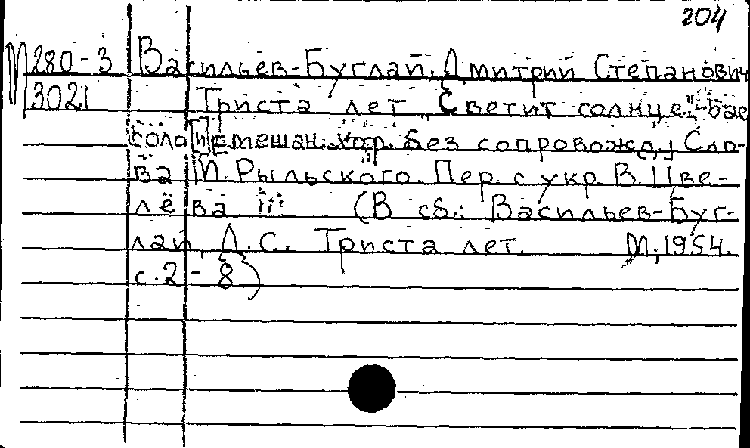 204
М280-3 Васильев-Буглай, Дмитрий Степанович
3021 Триста лет „Светит солнце"- Бас
соло [и] смешан. хор. без сопровожд., Сло-
ва М. Рыльского. Пер. с укр. В. Цве-
лёва (В сб.: Васильев-Буг-
лай, Д.С. Триста лет. М., 1954.
с. 2-8)